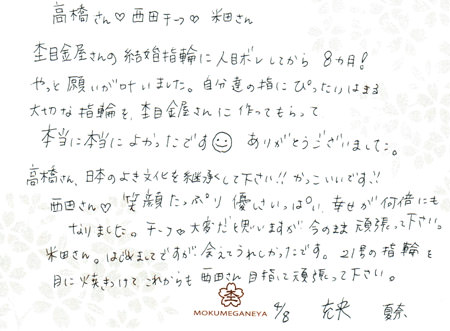 高橋さん♡西田チーフ♡米田さん
杢目金屋さんの結婚指輪に一目ボレしてから8カ月!
やっと願いが叶いました。自分達の指にぴったりはまる
大切な指輪を、杢目金屋さんに作ってもらって
本当に本当によかったです☺ ありがとうございました。
高橋さん、日本のよき文化を継承して下さい!!かっこいいです!!
西田さん♡ 笑顔たっぷり優しさいっぱい、幸せが何倍にも
なりました。チーフ♡大変だと思いますが今のまま頑張って下さい。
米田さん。はじめましてですが、会えてうれしかったです。21号の指輪を
目に焼きつけてこれからも西田さん目指して頑張って下さい。
MOKUMEGANEYA
4/8 充央 夏奈